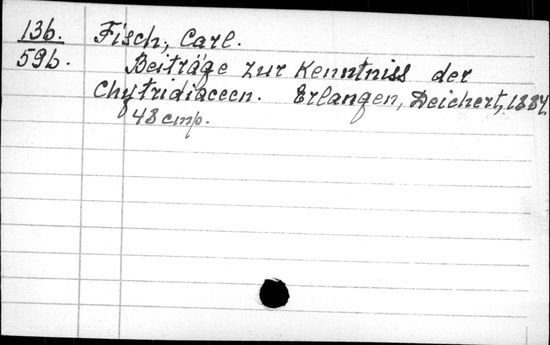 136. Fisch, Carl.
596. Beiträge zur Kenntniss der
Chytridiaceen. Erlangen, Deichert, 1884.
48 cmp.